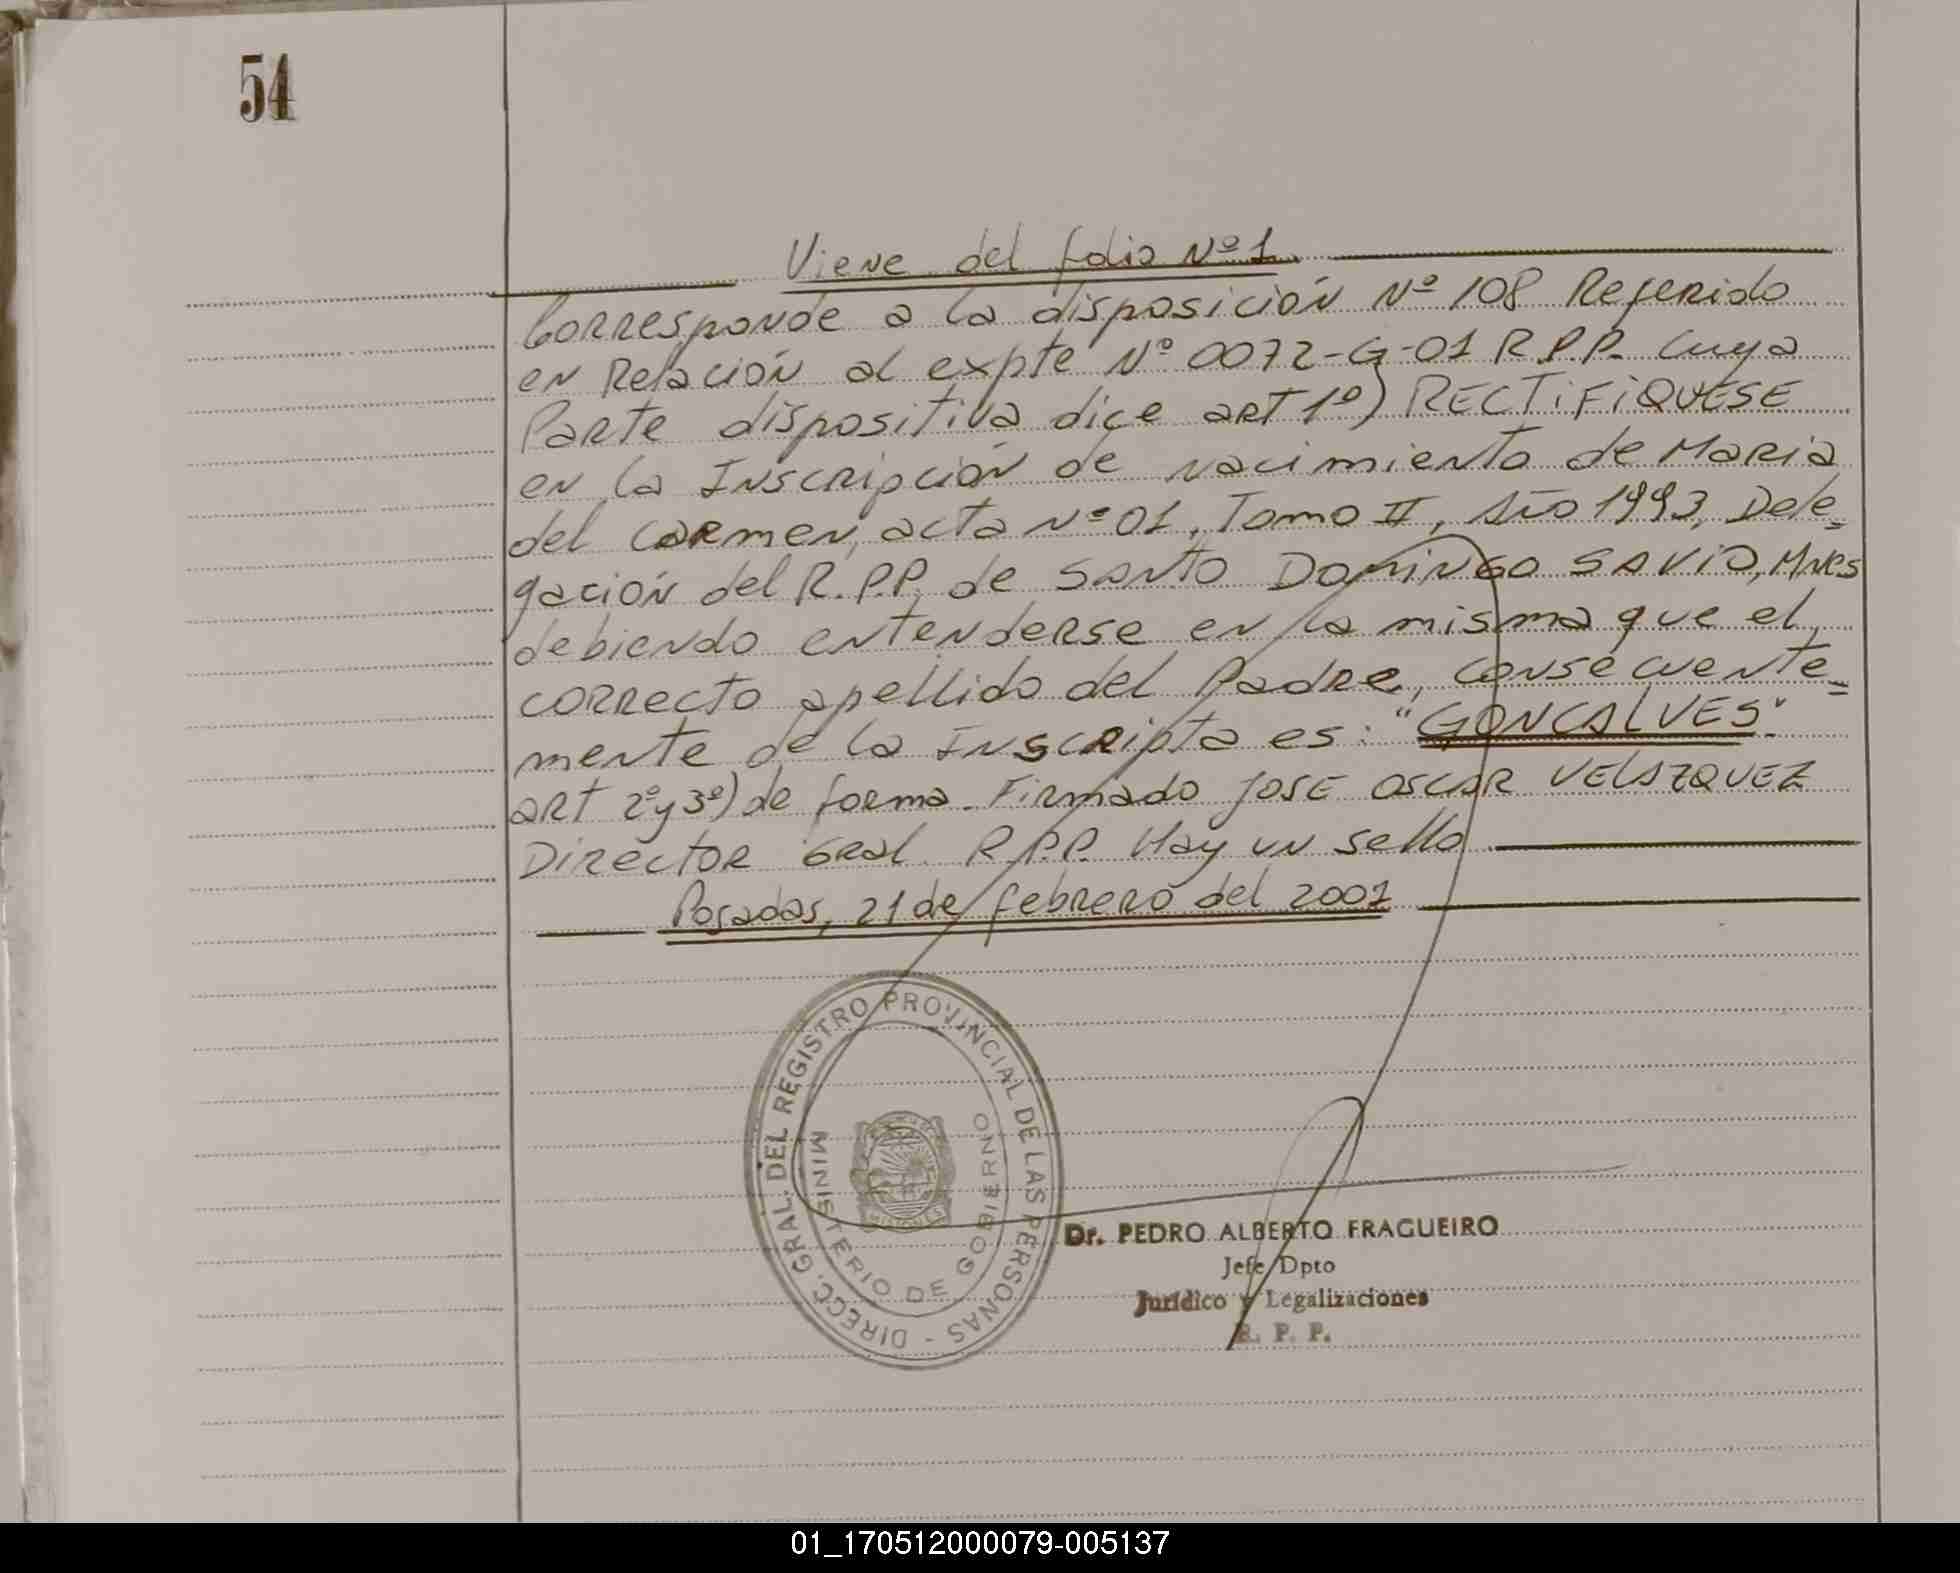 54
Viene del folio Nº 1
Corresponde a la disposición Nº 108 Referido
en Relación al expte Nº 0072-G-01 R.P.P. Cuya
Parte dispositiva dice art 1º) RECTIFIQUESE
en la Inscripción de nacimiento de Maria
del Carmen, acta Nº 01, Tomo II, Año 1993, Dele=
gación del R.P.P. de SANTO DOMINGO SAVIO, Mnes
debiendo entenderse en la misma que el
correcto apellido del Padre, consecuente=
mente de la Inscripta es: "GONCALVES".
art 2º y 3º) de forma. Firmado JOSE OSCAR VELAZQUEZ
Director Gral R.P.P. Hay un sello
Posadas, 21 de febrero del 2001
DIRECC. GRAL. DEL REGISTRO PROVINCIAL DE LAS PERSONAS -
MINISTERIO DE GOBIERNO
MISIONES
Dr. PEDRO ALBERTO FRAGUEIRO
Jefe Dpto
Jurídico y Legalizaciones
R. P. P.
01_170512000079-005137